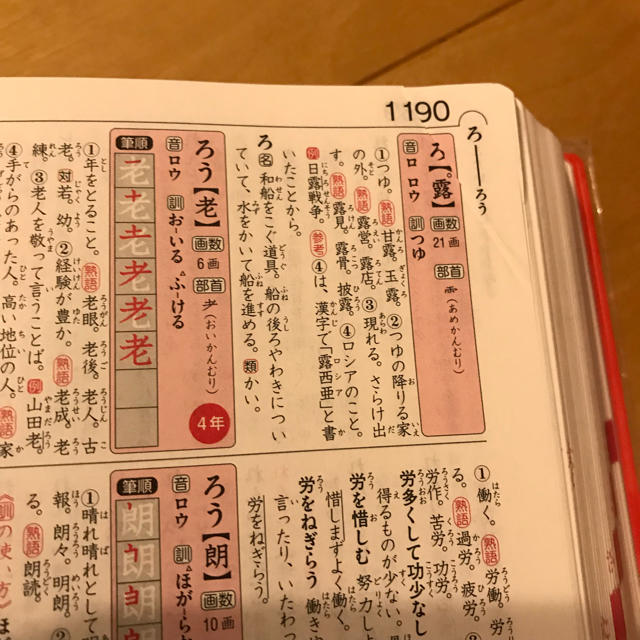 1190
ろ──ろう
ろ【露】 画数 21画 部首 雨(あめかんむり)
音 ロ ロウ 訓 つゆ
①つゆ。熟語 甘露。玉露。②つゆの降りる家
の外。熟語 露営。露店。③現れる。さらけ出
す。熟語 露見。露骨。披露。④ロシアのこと。
例 日露戦争。参考 ④は、漢字で「露西亜」と書
いたことから。
ろ 名 和船をこぐ道具。船の後ろやわきについ
ていて、水をかいて船を進める。類 かい。
ろう【老】 画数 6画 部首 耂(おいかんむり) 4年
音 ロウ 訓 お-いる ふ-ける
筆順
①年をとること。熟語 老眼。老後。老人。古
老。対 若。幼。②経験が豊か。熟語 老成。老
練。③老人を敬って言うことば。例 山田老。
④手がらのあった人。高い地位の人。熟語 家
①働く。熟語 労働。労
る。熟語 過労。疲労。
労作。苦労。功労。
労多くして功少なし
得るものが少ない。
労を惜しむ 努力しよ
惜しまずよく働く。
労をねぎらう 働きや
言ったり、いたわっ
労をねぎらう。
ろう【朗】 画数 10画
音 ロウ 訓 ほが-らか
筆順
①晴れ晴れとして明
報。朗々。明朗。
る。熟語 朗読。
《訓の使い方》ほ